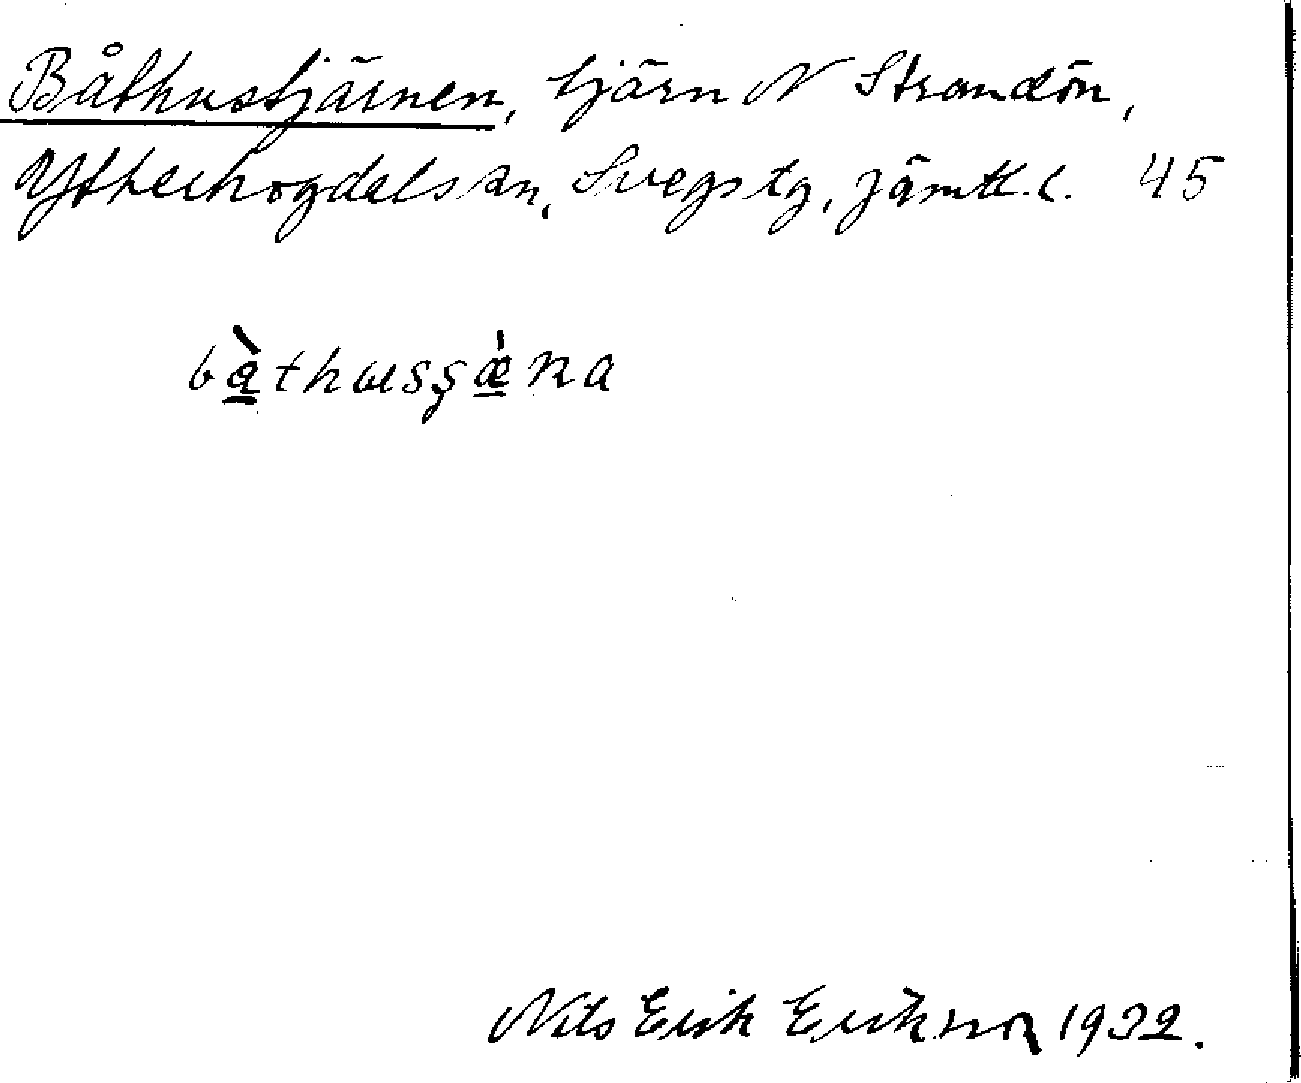 Båthustjärnen, tjärn N Strandön,
Ytterhogdals sn, Svegs tg, Jämtl. l. 45
bàthusşæ̀na
Nils Erik Erikson 1932.